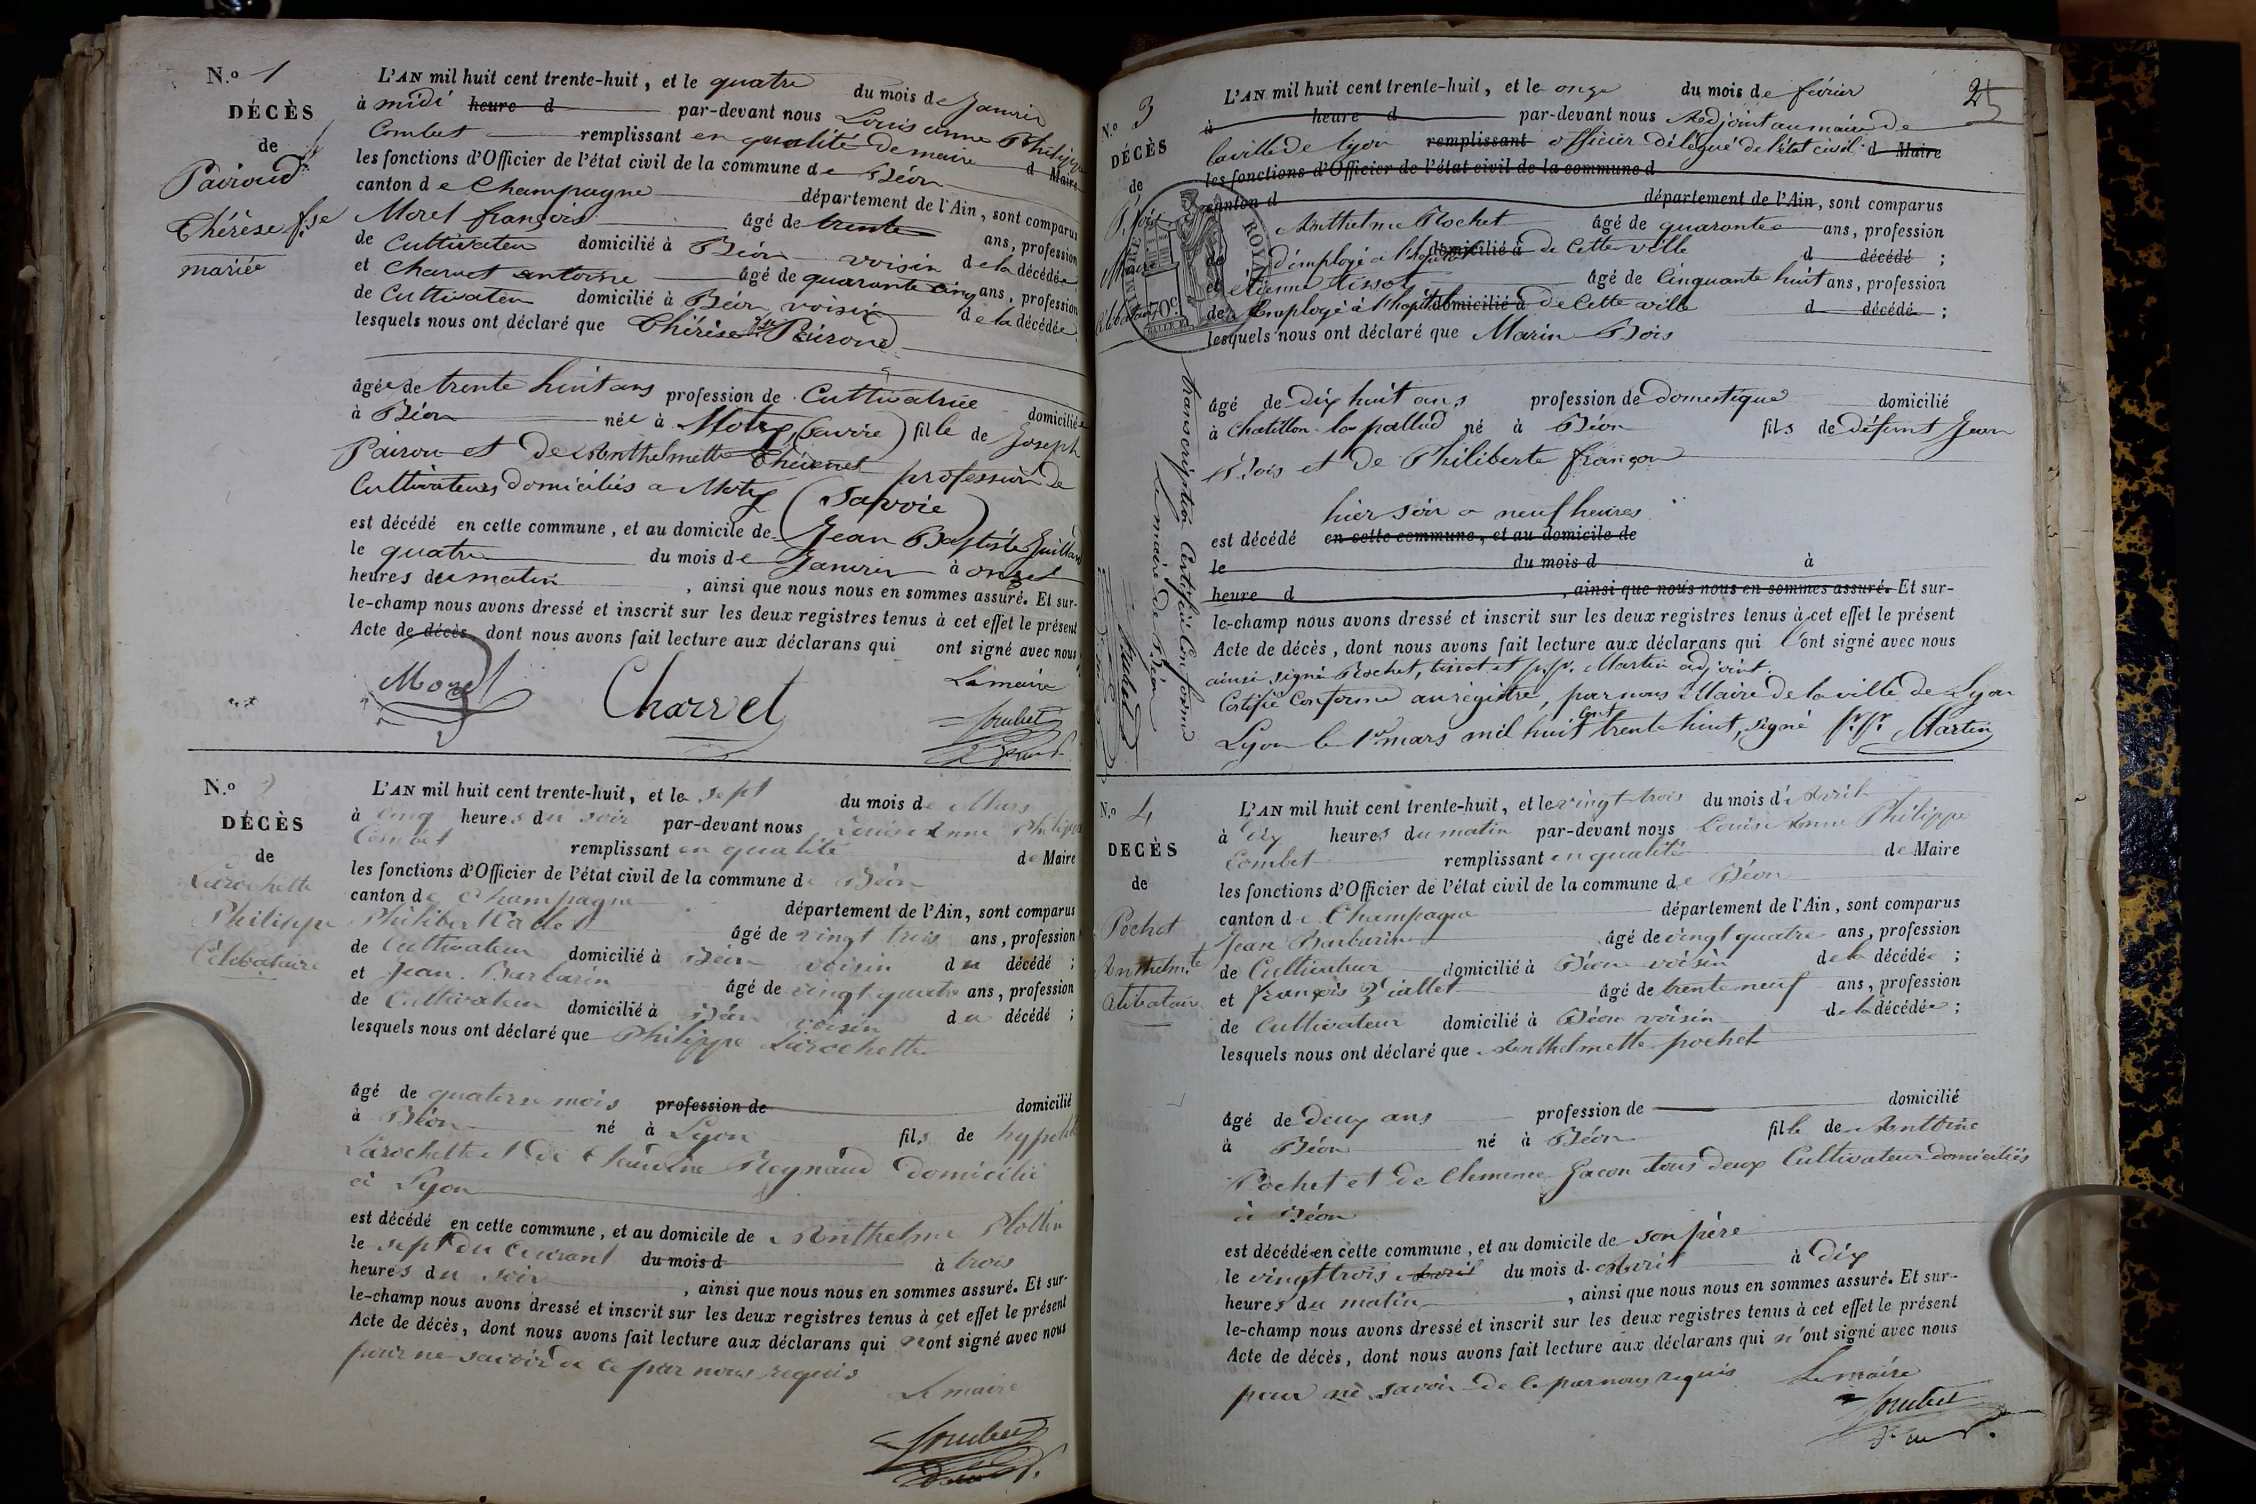 N.º 1
DÉCÈS
de
Pairoud
Thérèse f.se
mariée
L'AN mil huit cent trente-huit, et le quatre du mois de Janvier
à midi heure d par-devant nous Louis anne Philippe
Combet remplissant en qualité de maire d Maire
les fonctions d'Officier de l'état civil de la commune de Béon
canton de Champagne département de l'Ain, sont comparus
Morel françois âgé de trente ans, profession
de Cultivateur domicilié à Béon voisin de la décédée
et Charvet antoine âgé de quarante cinq ans, profession
de Cultivateur domicilié à Béon voisin de la décédée
lesquels nous ont déclaré que Thérèse Pairoud
âgée de trente huit ans profession de Cultivatrice domiciliée
à Béon née à Motz (Savoie) fille de Joseph
Pairou et de Anthelmette Thévenet profession de
Cultivateurs domiciliés a Motz (Savoie)
est décédé en cette commune, et au domicile de Jean Baptiste Guilland
le quatre du mois de Janvier à onze
heures du matin, ainsi que nous nous en sommes assuré. Et sur-
le-champ nous avons dressé et inscrit sur les deux registres tenus à cet effet le présent
Acte de décès, dont nous avons fait lecture aux déclarans qui ont signé avec nous
Morel Charvet Le maire
Combet
N.º 2
DÉCÈS
de
Larochette
Philippe
Célibataire
L'AN mil huit cent trente-huit, et le sept du mois de Mars
à cinq heures du soir par-devant nous Louis Anne Philippe
Combet remplissant en qualité de Maire
les fonctions d'Officier de l'état civil de la commune de Béon
canton de Champagne département de l'Ain, sont comparus
Philibert âgé de vingt trois ans, profession
de Cultivateur domicilié à Béon voisin du décédé ;
et Jean Barbarin âgé de vingt quatre ans, profession
de Cultivateur domicilié à Béon voisin du décédé ;
lesquels nous ont déclaré que Philippe Larochette
âgé de quatorze mois profession de domicilié
à Béon né à Lyon fils de hypolite
Larochette et de Claudine Reynaud domicilié
à Lyon
est décédé en cette commune, et au domicile de Anthelme Plottin
le sept du courant du mois d à trois
heures du soir, ainsi que nous nous en sommes assuré. Et sur-
le-champ nous avons dressé et inscrit sur les deux registres tenus à cet effet le présent
Acte de décès, dont nous avons fait lecture aux déclarans qui n'ont signé avec nous
pour ne savoir de ce par nous requis
Le maire
Combet
25
N.º 3
DÉCÈS
de
Bois
Marin
Célibataire
TIMBRE ROYAL
70c
L'AN mil huit cent trente-huit, et le onze du mois de février
à heure d par-devant nous Adjoint au maire de
la ville de lyon remplissant officier délégué de l'état civil d Maire
les fonctions d'Officier de l'état civil de la commune d
canton d département de l'Ain, sont comparus
Anthelme Rochet âgé de quarante ans, profession
de d'employé a l'hopital domicilié à de Cette ville d décédé ;
et etienne tissot âgé de Cinquante huit ans, profession
de Employé à l'hopital domicilié à de Cette ville d décédé ;
lesquels nous ont déclaré que Marin Bois
âgé de dix huit ans profession de domestique domicilié
à Chatillon la pallud né à Béon fils de défunt Jean
Bois et de Philiberte françon
hier soir a neuf heures
est décédé en cette commune, et au domicile de
le du mois d à
heure d, ainsi que nous nous en sommes assuré. Et sur-
le-champ nous avons dressé et inscrit sur les deux registres tenus à cet effet le présent
Acte de décès, dont nous avons fait lecture aux déclarans qui l'ont signé avec nous
ainsi signé Rochet, tissot et Martin adjoint.
Certifié Conforme au régistre, par nous Maire de la ville de Lyon
Lyon le 1er mars mil huit Cent trente huit, signé Martin
transcription Certifiée Conforme
Le maire de Béon
Combet
N.º 4
DÉCÈS
de
Pochet
Anthelm.te
Célibataire
L'AN mil huit cent trente-huit, et le vingt-trois du mois d'Avril
à dix heures du matin par-devant nous Louis Anne Philippe
Combet remplissant en qualité de Maire
les fonctions d'Officier de l'état civil de la commune de Béon
canton de Champagne département de l'Ain, sont comparus
Jean Barbarin âgé de vingt quatre ans, profession
de Cultivateur domicilié à Béon voisin de la décédée ;
et françois Viallet âgé de trente neuf ans, profession
de Cultivateur domicilié à Béon voisin de la décédée ;
lesquels nous ont déclaré que Anthelmette pochet
âgé de deux ans profession de domicilié
à Béon né à Béon fille de Antoine
Pochet et de Clemence Jacon tous deux Cultivateur domiciliés
à Béon
est décédée en cette commune, et au domicile de son père
le vingt trois Avril du mois d'Avril à dix
heures du matin, ainsi que nous nous en sommes assuré. Et sur-
le-champ nous avons dressé et inscrit sur les deux registres tenus à cet effet le présent
Acte de décès, dont nous avons fait lecture aux déclarans qui n'ont signé avec nous
pour ne savoir de ce par nous requis Le maire
Combet